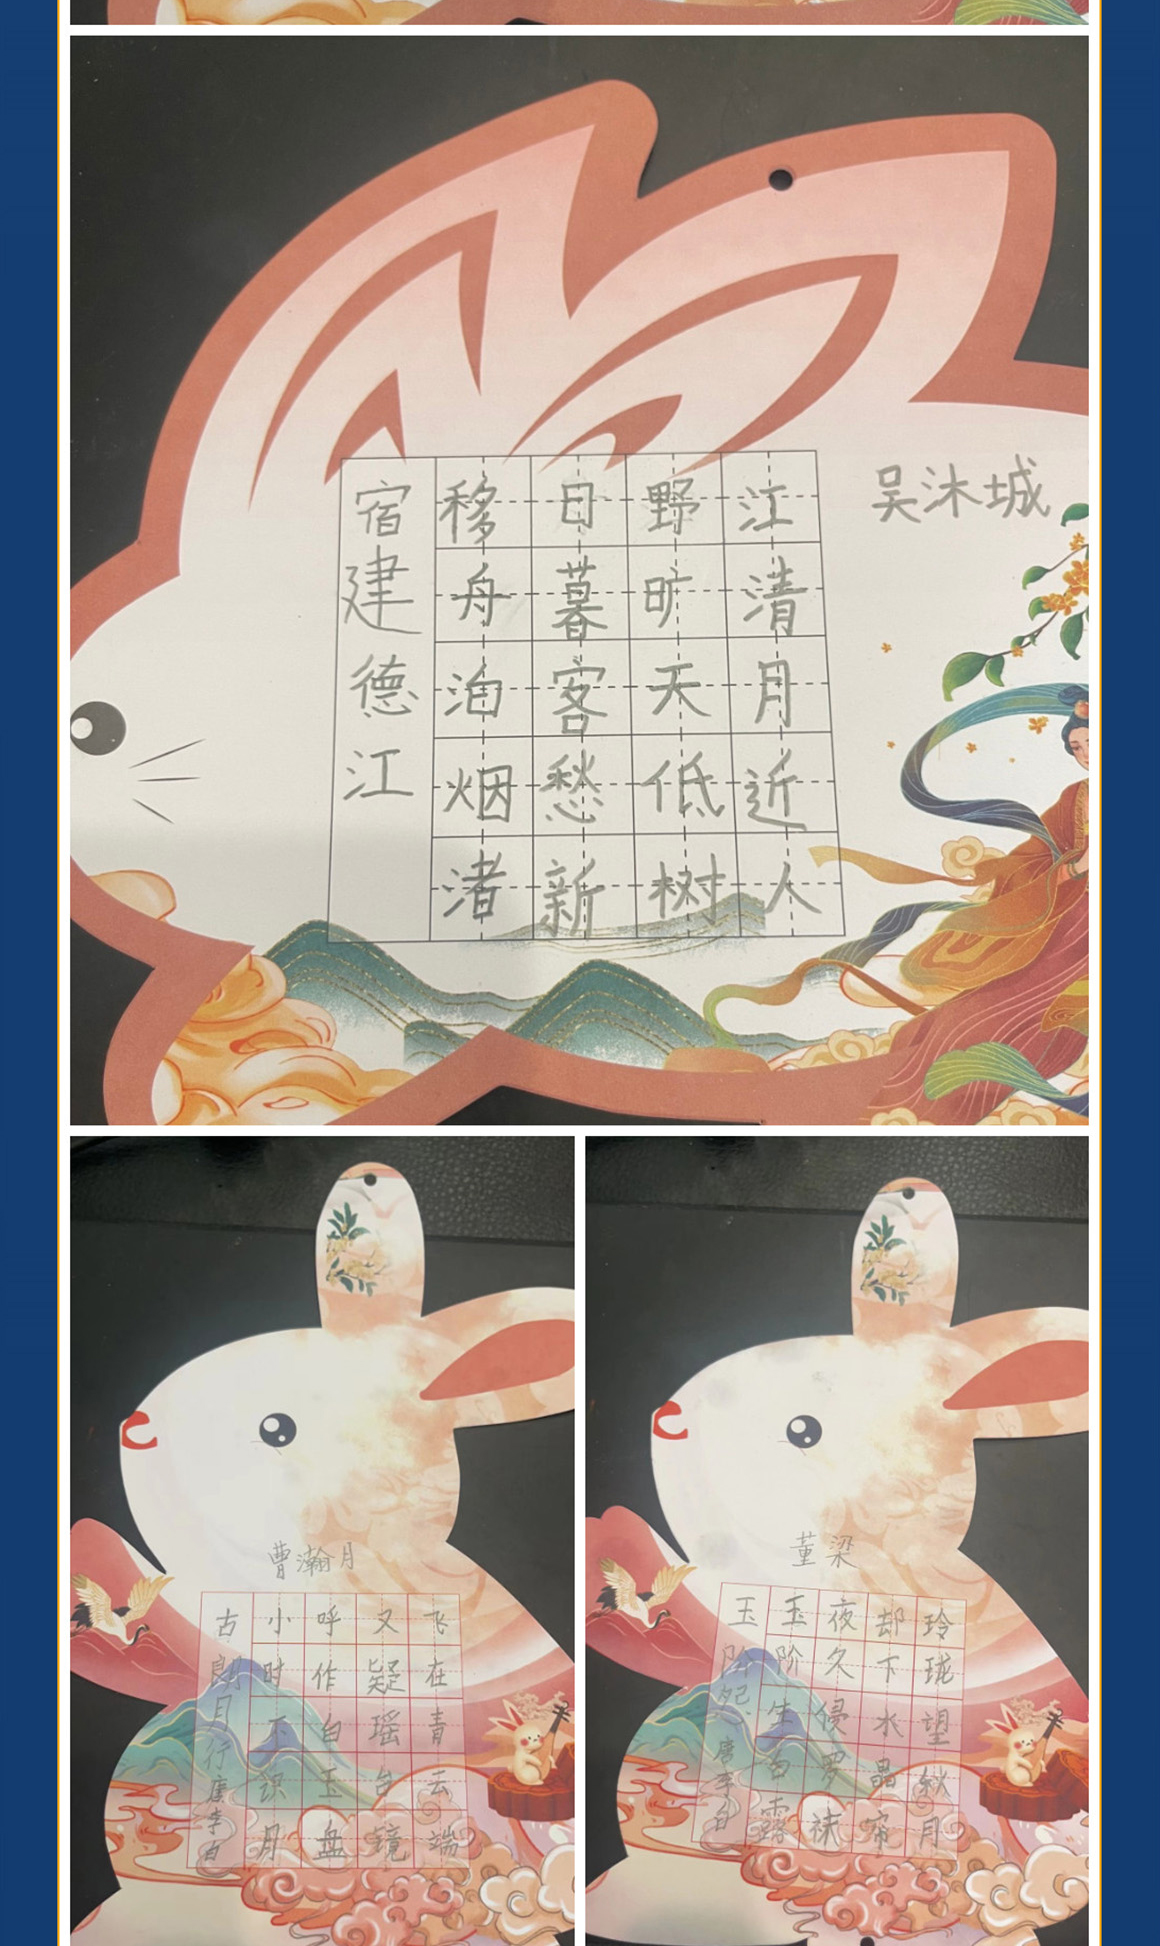 宿建德江
移舟泊烟渚
日暮客愁新
野旷天低树
江清月近人
吴沐城
曹瀚月
古朗月行 唐 李白
小时不识月
呼作白玉盘
又疑瑶台镜
飞在青云端
董梁
玉阶怨 唐 李白
玉阶生白露
夜久侵罗袜
却下水晶帘
玲珑望秋月